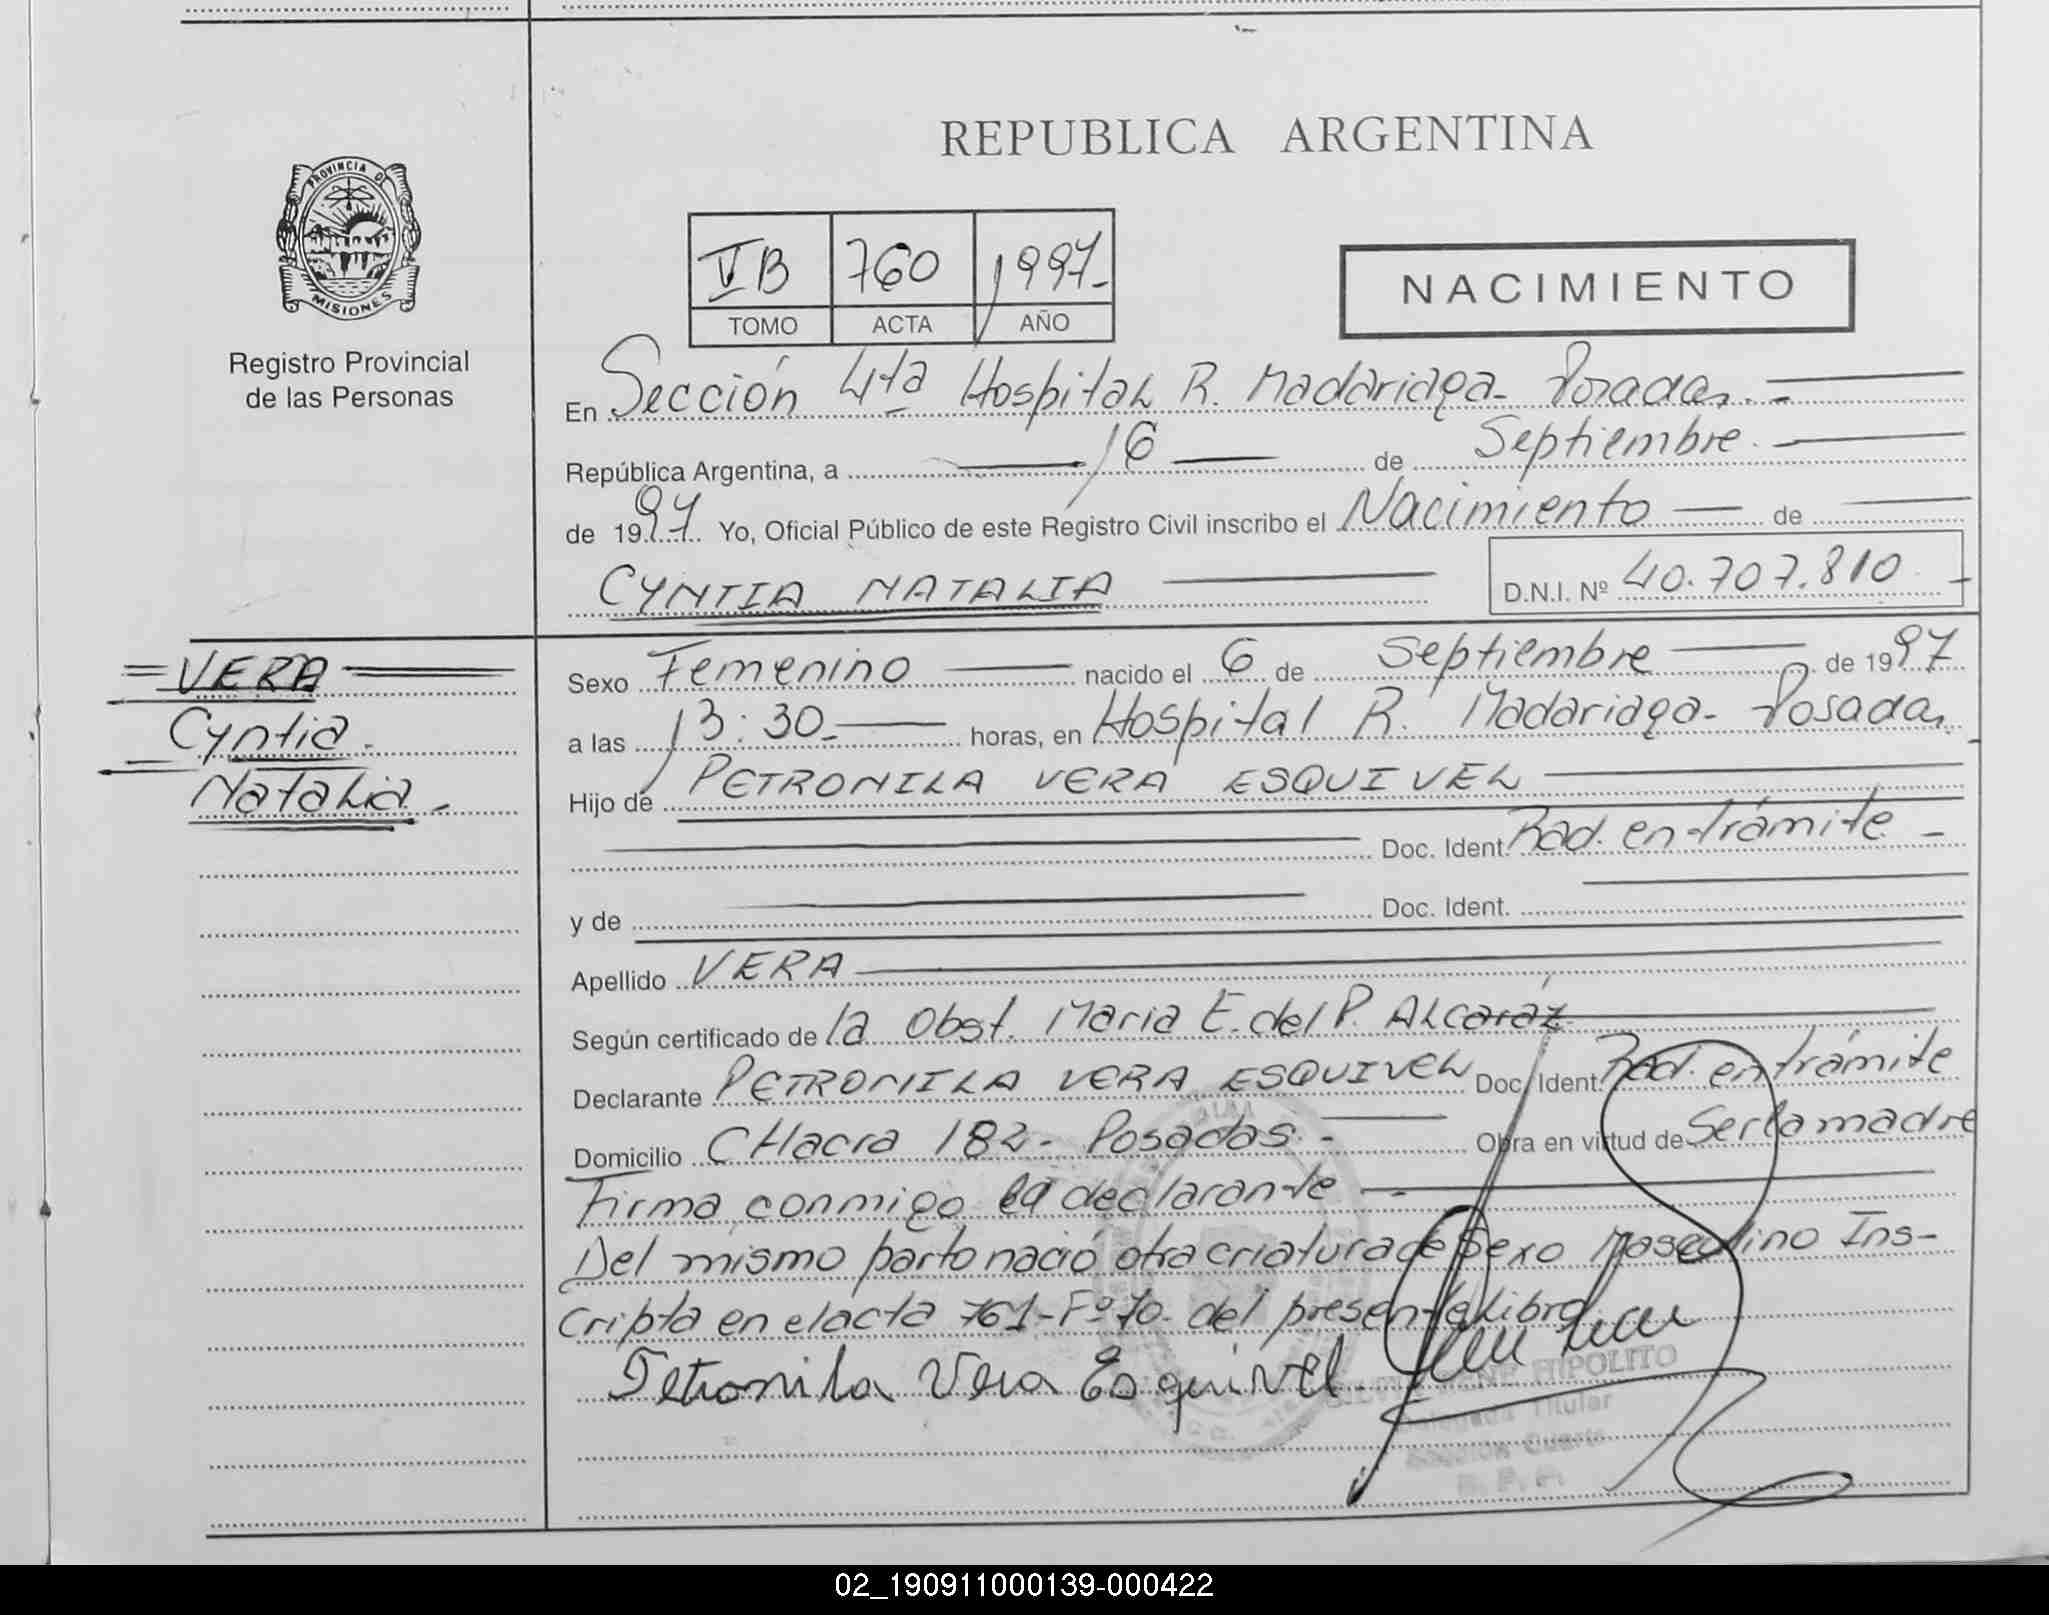 REPUBLICA ARGENTINA
PROVINCIA DE
MISIONES
Registro Provincial
de las Personas
VB 760 1997-
TOMO ACTA AÑO
NACIMIENTO
En Sección 4ta Hospital R. Madariaga- Posadas.-
República Argentina, a 16 de Septiembre.
de 1997 Yo, Oficial Público de este Registro Civil inscribo el Nacimiento de
CYNTIA NATALIA D.N.I. Nº 40.707.810.-
VERA
Cyntia.
Natalia.-
Sexo Femenino nacido el 6 de Septiembre de 1997
a las 13:30- horas, en Hospital R. Madariaga- Posadas
Hijo de PETRONILA VERA ESQUIVEL
Doc. Ident. Rad. en trámite-
y de Doc. Ident.
Apellido VERA
Según certificado de la Obst. Maria E. del P. Alcaráz
Declarante PETRONILA VERA ESQUIVEL Doc. Ident. Rad. en trámite
Domicilio CHacra 182- Posadas.- Obra en virtud de Ser la madre
Firma conmigo la declarante.-
Del mismo parto nació otra criatura de Sexo Masculino Ins-
cripta en el acta 761-Fº70. del presente Libro.
Petronila Vera Esquivel.
IRENE HIPOLITO
Delegada Titular
Sección Cuarta
R. P. P.
02_190911000139-000422